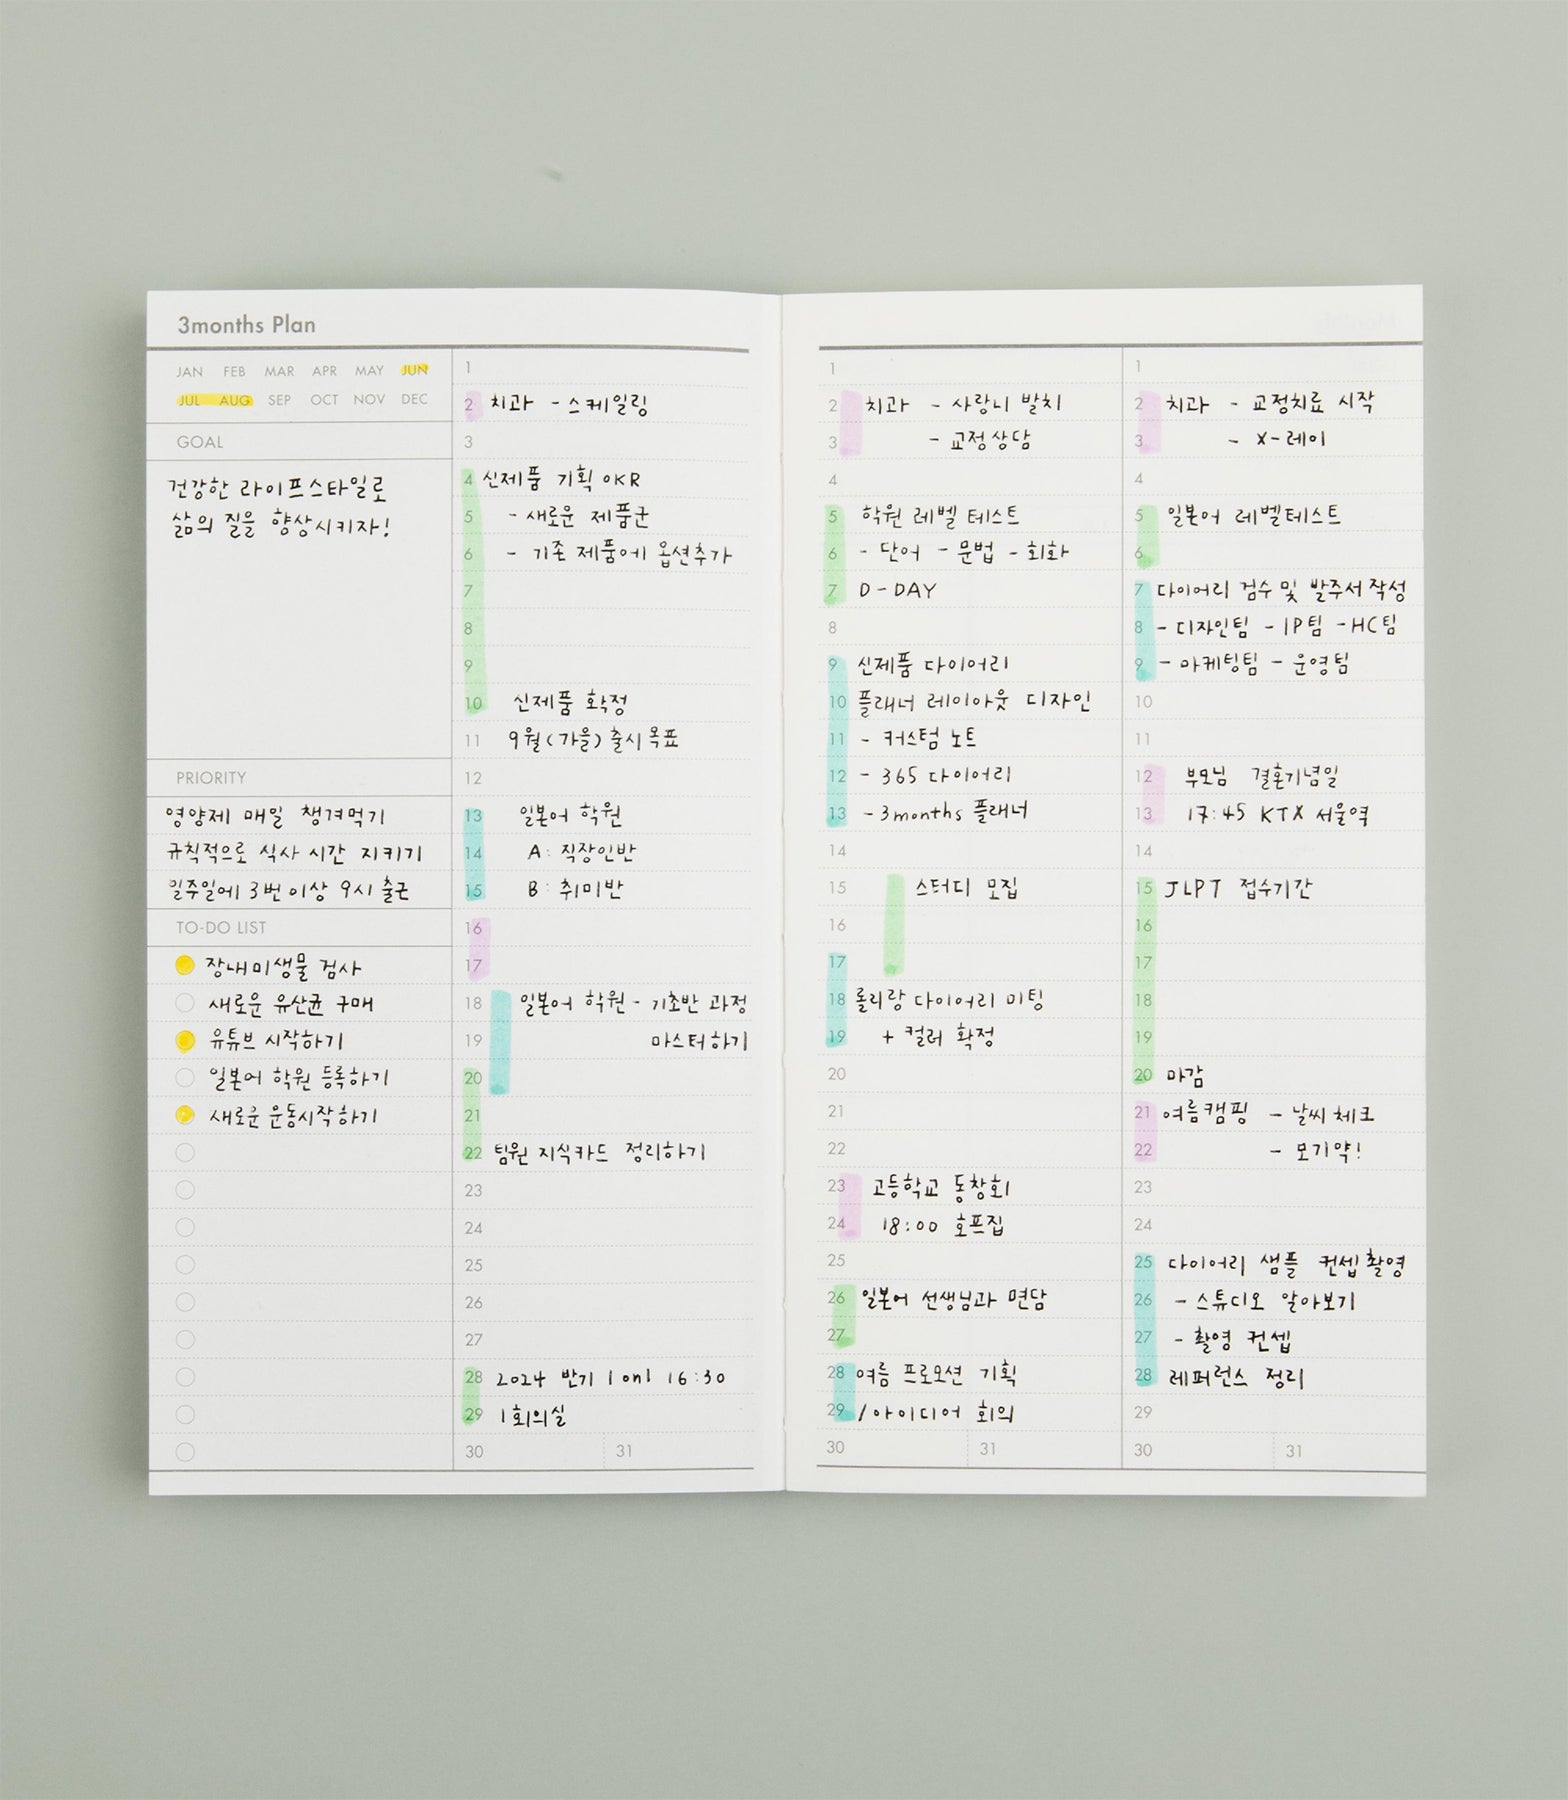 3months Plan
JAN FEB MAR APR MAY JUN
JUL AUG SEP OCT NOV DEC
GOAL
건강한 라이프스타일로
삶의 질을 향상시키자!
PRIORITY
영양제 매일 챙겨먹기
규칙적으로 식사 시간 지키기
일주일에 3번 이상 9시 출근
TO-DO LIST
장내미생물 검사
새로운 유산균 구매
유튜브 시작하기
일본어 학원 등록하기
새로운 운동시작하기
1
2 치과 - 스케일링
3
4 신제품 기획 OKR
5 - 새로운 제품군
6 - 기존 제품에 옵션추가
7
8
9
10 신제품 확정
11 9월(가을) 출시목표
12
13 일본어 학원
14 A: 직장인반
15 B: 취미반
16
17
18 일본어 학원 - 기초반 과정
19 마스터하기
20
21
22 팀원 지식카드 정리하기
23
24
25
26
27
28 2024 반기 1on1 16:30
29 1회의실
30 31
1
2 치과 - 사랑니 발치
3 - 교정상담
4
5 학원 레벨 테스트
6 - 단어 - 문법 - 회화
7 D-DAY
8
9 신제품 다이어리
10 플래너 레이아웃 디자인
11 - 커스텀 노트
12 - 365 다이어리
13 - 3months 플래너
14
15 스터디 모집
16
17
18 롤리랑 다이어리 미팅
19 + 컬러 확정
20
21
22
23 고등학교 동창회
24 18:00 호프집
25
26 일본어 선생님과 면담
27
28 여름 프로모션 기획
29 /아이디어 회의
30 31
1
2 치과 - 교정치료 시작
3 - X-레이
4
5 일본어 레벨테스트
6
7 다이어리 검수 및 발주서 작성
8 - 디자인팀 - IP팀 - HC팀
9 - 마케팅팀 - 운영팀
10
11
12 부모님 결혼기념일
13 17:45 KTX 서울역
14
15 JLPT 접수기간
16
17
18
19
20 마감
21 여름캠핑 - 날씨 체크
22 - 모기약!
23
24
25 다이어리 샘플 컨셉촬영
26 - 스튜디오 알아보기
27 - 촬영 컨셉
28 레퍼런스 정리
29
30 31